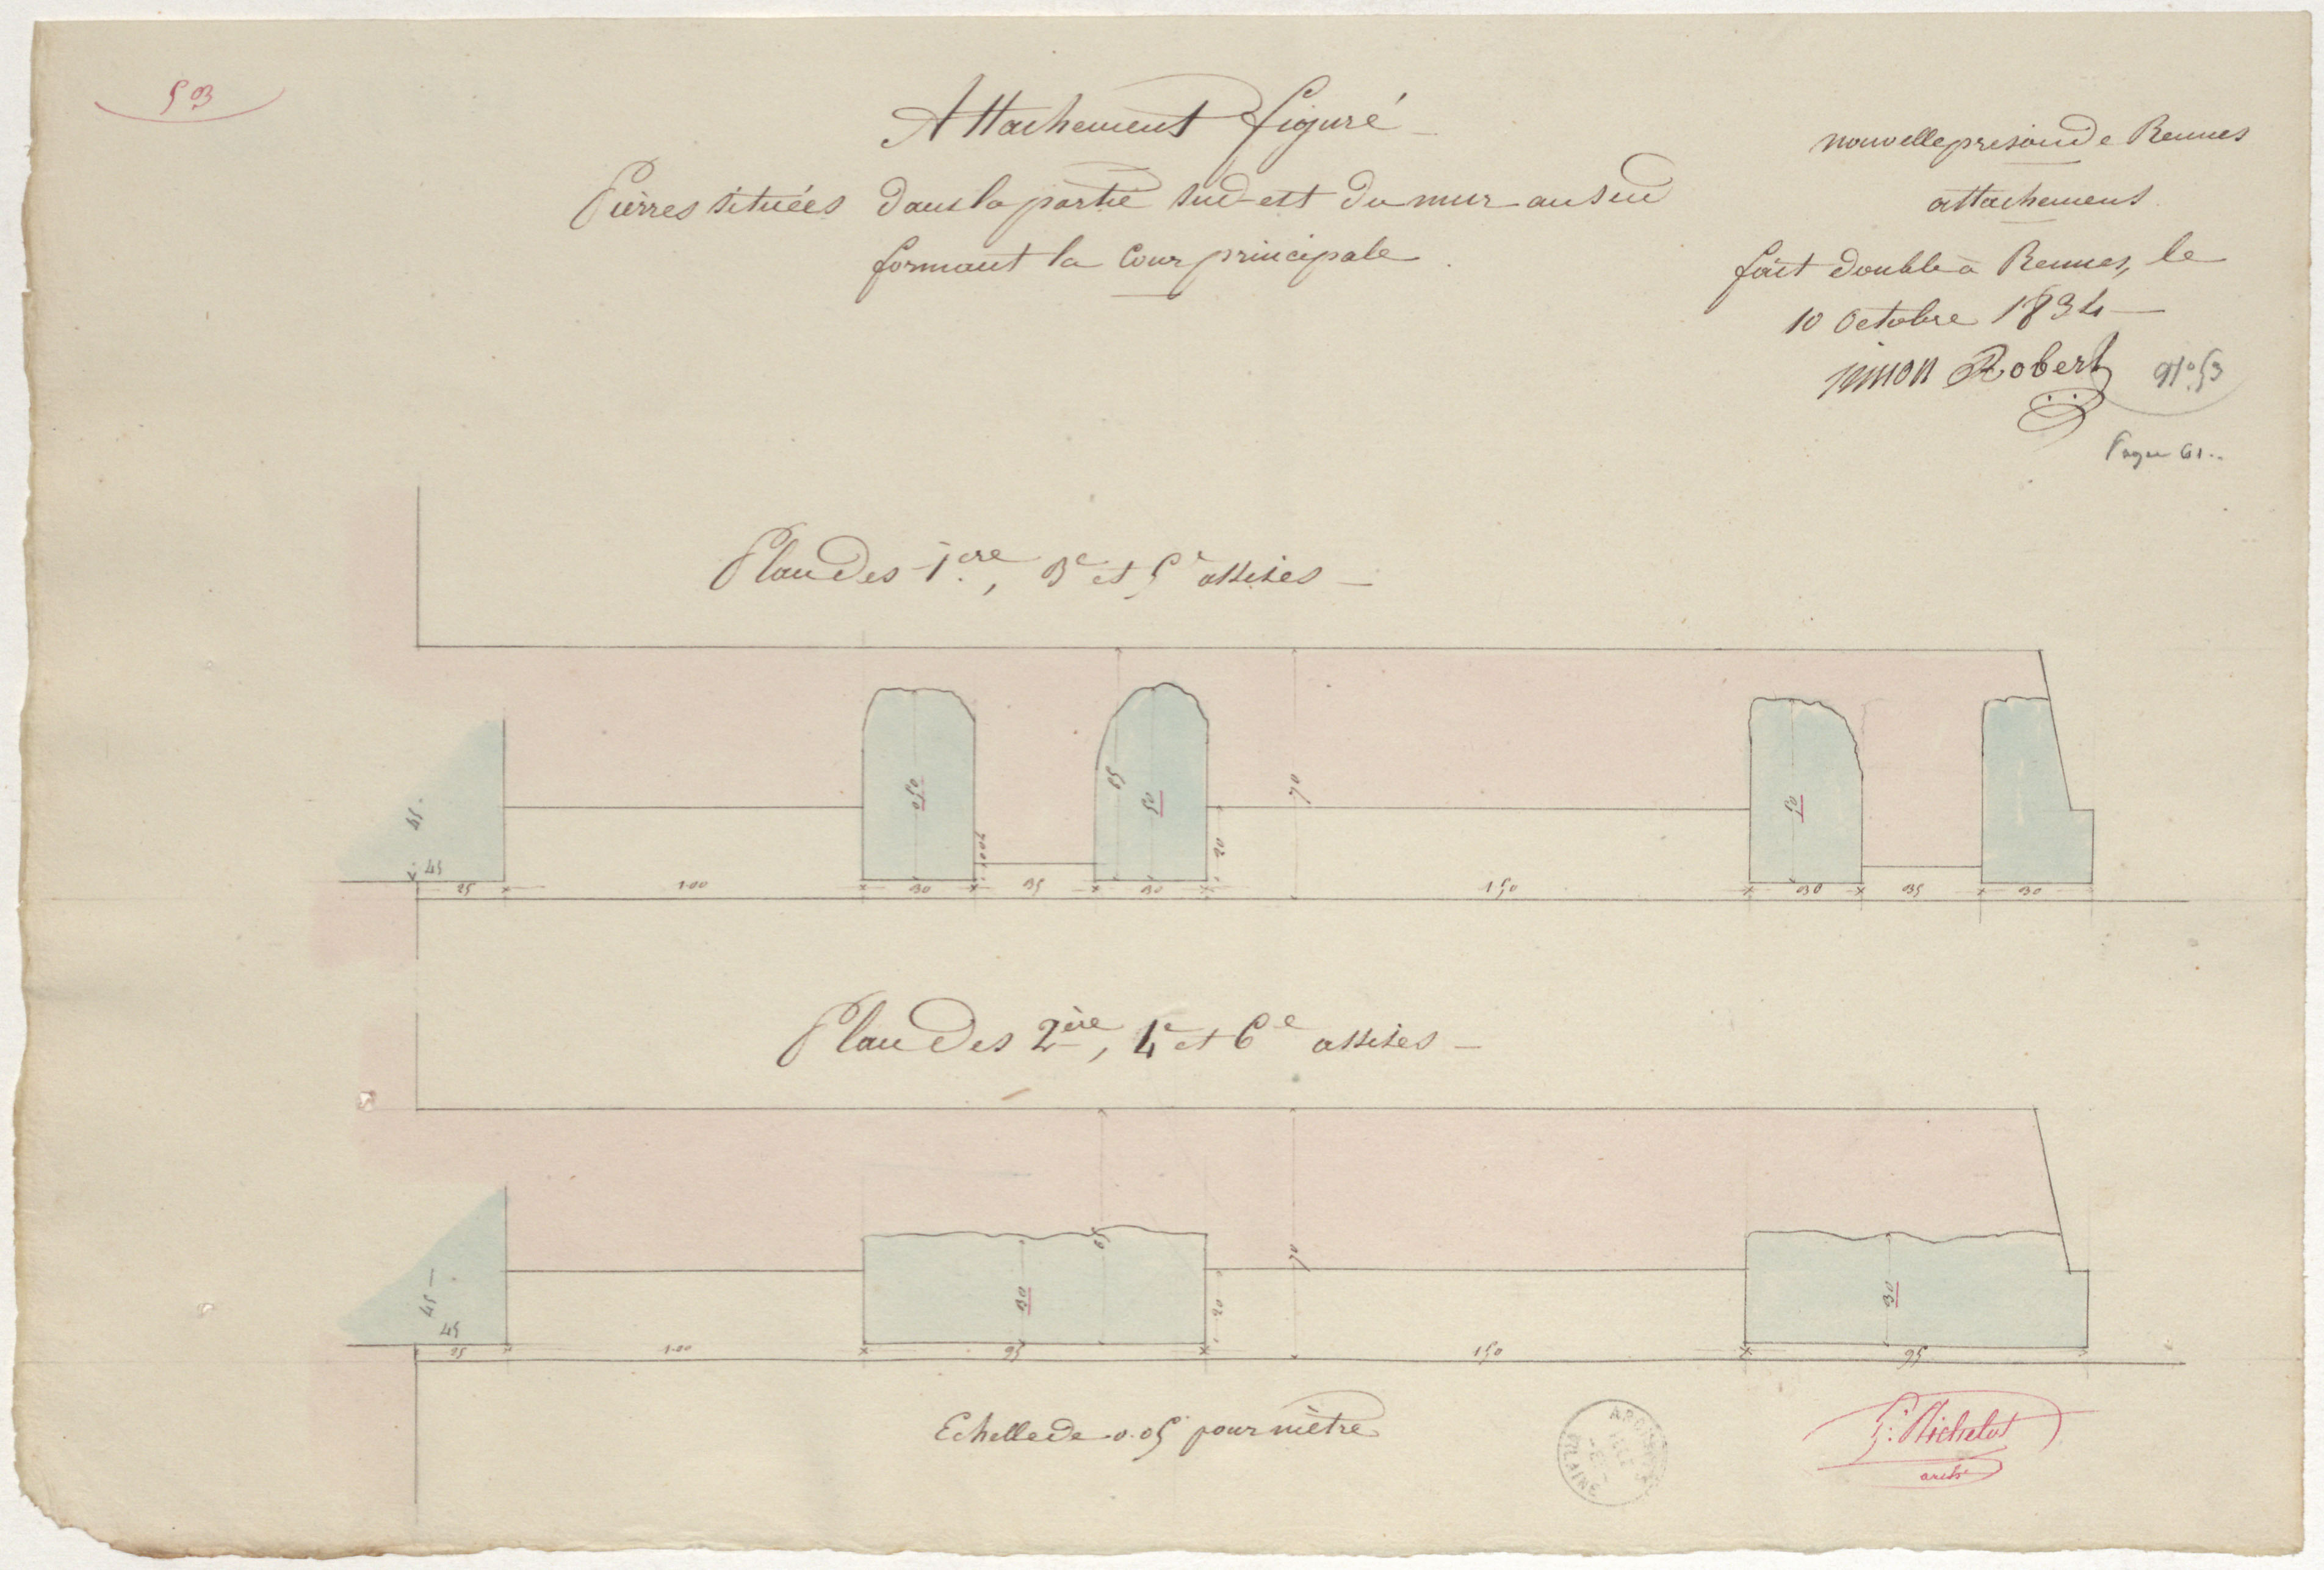 53
Attachement figuré
Pierres situées dans la partie sud-est du mur au sud
formant la Cour principale.
nouvelle prison de Rennes
attachement
fait double à Rennes, le
10 Octobre 1834
simon Robert
N° 53
Page 61..
Plan des 1ere, 3e et 5e assises
45
45
25 100 30 35 30 150 30 35 30
0,50
65
50
20
70
50
Plan des 2ème, 4e et 6e assises
45
45
25 100 95 150 95
30
65
20
70
30
Echelle de 0.05 pour mètre
ILLE
VILAINE
F: Richelot
archte